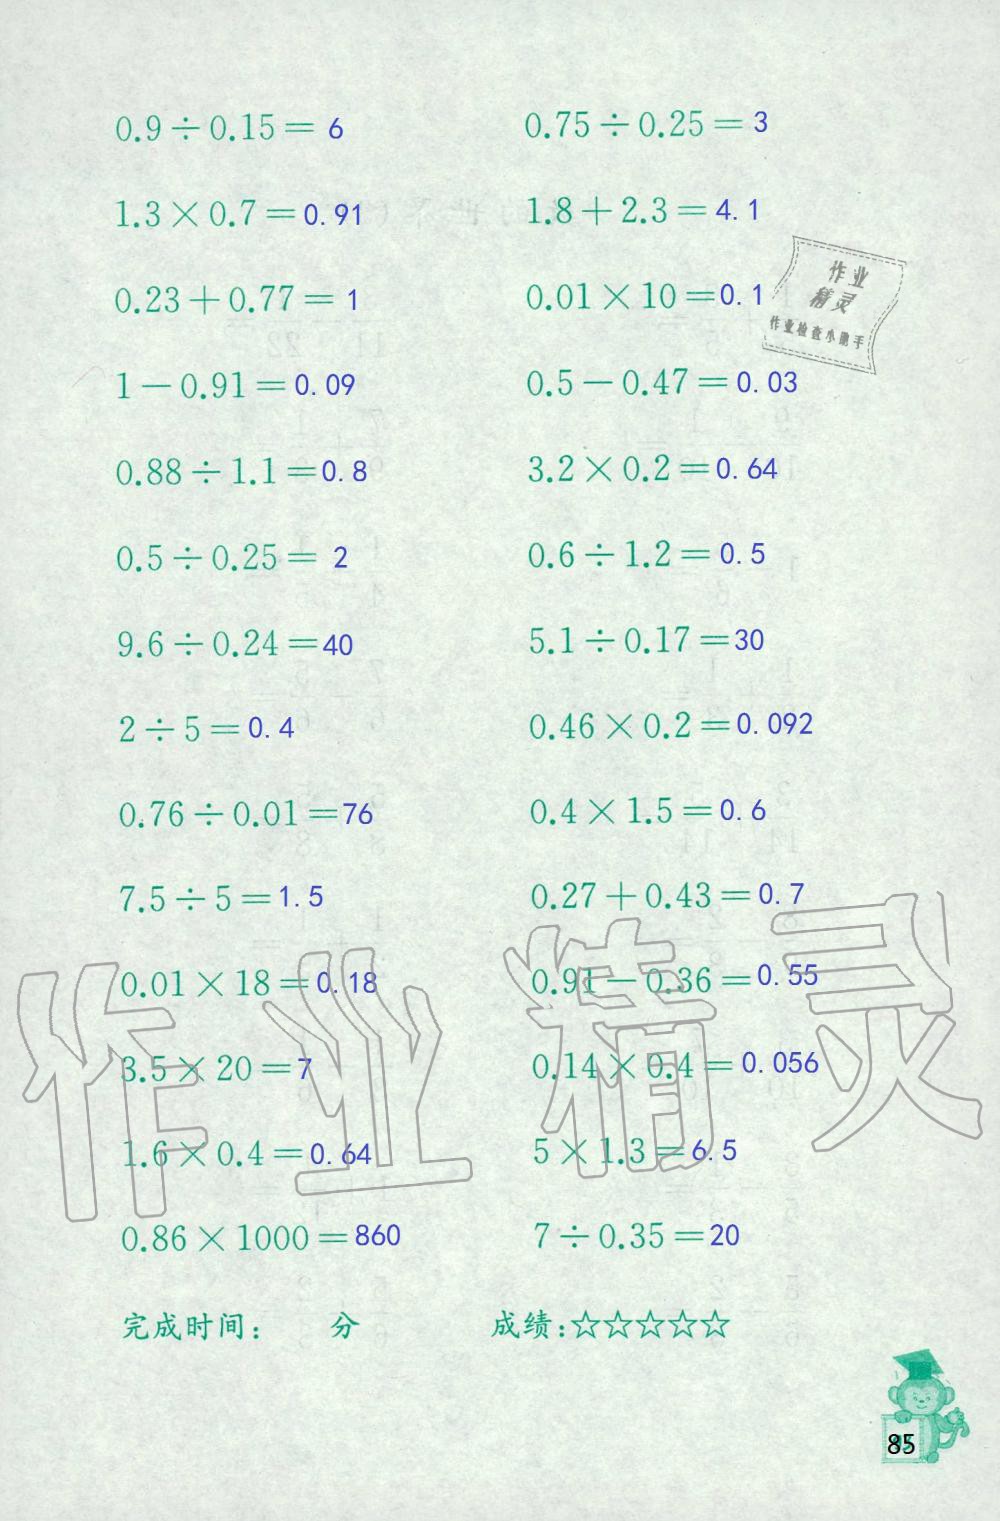 0.9÷0.15= 6 0.75÷0.25= 3
1.3×0.7=0.91 1.8+2.3=4.1
0.23+0.77= 1 0.01×10=0.1
作业
精灵
作业检查小助手
1-0.91=0.09 0.5-0.47=0.03
0.88÷1.1=0.8 3.2×0.2=0.64
0.5÷0.25= 2 0.6÷1.2=0.5
9.6÷0.24=40 5.1÷0.17=30
2÷5=0.4 0.46×0.2=0.092
0.76÷0.01=76 0.4×1.5=0.6
7.5÷5=1.5 0.27+0.43=0.7
0.01×18=0.18 0.91-0.36=0.55
作业精灵
3.5×20=7 0.14×0.4=0.056
1.6×0.4=0.64 5×1.3=6.5
0.86×1000=860 7÷0.35=20
完成时间: 分 成绩:☆☆☆☆☆
85